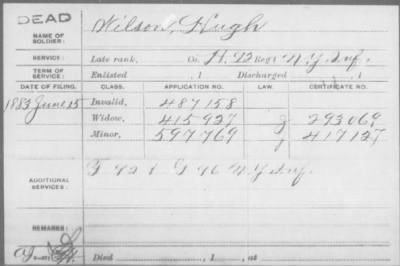 DEAD
NAME OF SOLDIER: Wilson, Hugh
SERVICE: Late rank, Co. H, 92 Reg't N.Y. Inf.
TERM OF SERVICE: Enlisted , 1 Discharged , 1
DATE OF FILING. CLASS. APPLICATION NO. LAW. CERTIFICATE NO.
1883 June 15 Invalid, 487158
Widow, 415927 293069
Minor, 597769 417127
ADDITIONAL SERVICES: F 92 & G 96 N.Y. Inf.
REMARKS:
Died , 1 , at